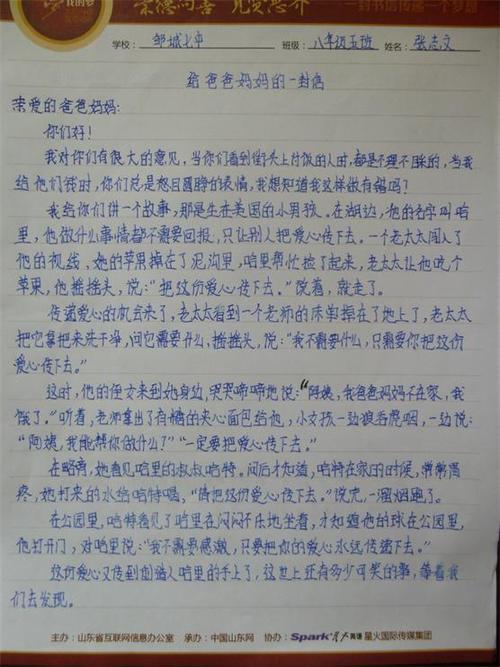 崇德向善 见贤思齐
一封书信传递一个梦想
学校: 邹城七中 班级: 八年级五班 姓名: 张志文
给爸爸妈妈的一封信
亲爱的爸爸妈妈:
你们好!
我对你们有很大的意见,当你们看到街头上讨饭的人时,都是不理不睬的,当我
给他们钱时,你们总是怒目圆睁的表情,我想知道我这样做有错吗?
我给你们讲一个故事,那是生在美国的小男孩。在湖边,他的名字叫哈
里,他做什么事情都不需要回报,只让别人把爱心传下去。一个老太太闯入了
他的视线,她的苹果掉在了泥沟里,哈里帮忙捡了起来,老太太让他吃个
苹果,他摇摇头,说:“把这份爱心传下去。”说着,就走了。
传递爱心的机会来了,老太太看到一个老师的床单掉在了地上了,老太太
把它拿把来洗干净,问它需要什么,摇摇头,说:“我不需要什么,只需要你把这份
爱心传下去。”
这时,他的侄女来到她身边,哭哭啼啼地说:“阿姨,我爸爸妈妈不在家,我
饿了。”听着,老师拿出了有糖的夹心面包给他,小女孩一边狼吞虎咽,一边说:
“阿姨,我能帮你做什么?”“一定要把爱心传下去。”
在路南,她看见哈里的叔叔哈特。问后才知道,哈特在家的时候,常常胃
疼,她打来的水给哈特喝,“请把这份爱心传下去。”说完,一溜烟跑了。
在公园里,哈特看见了哈里在闷闷不乐地坐着,才知道他的球在公园里,
他打开门,对哈里说:“我不需要感激,只要把你的爱心永远传递下去。”
这份爱心又传到创造人哈里的手上了,这世上还有多少可笑的事,等着我
们去发现。
主办:山东省互联网信息办公室 承办:中国山东网 协办:Spark 星火英语 星火国际传媒集团